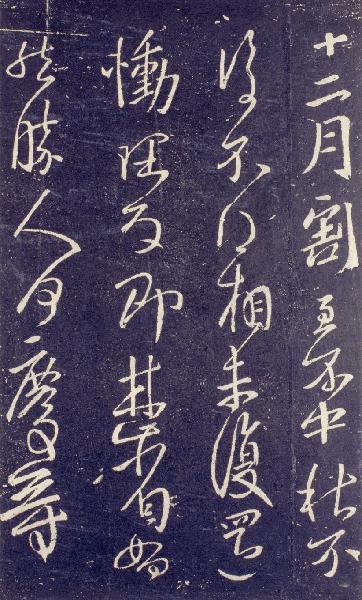 十二月割至不中秋不
復不得相未復還
慟理為即甚省如
然勝人何慶等